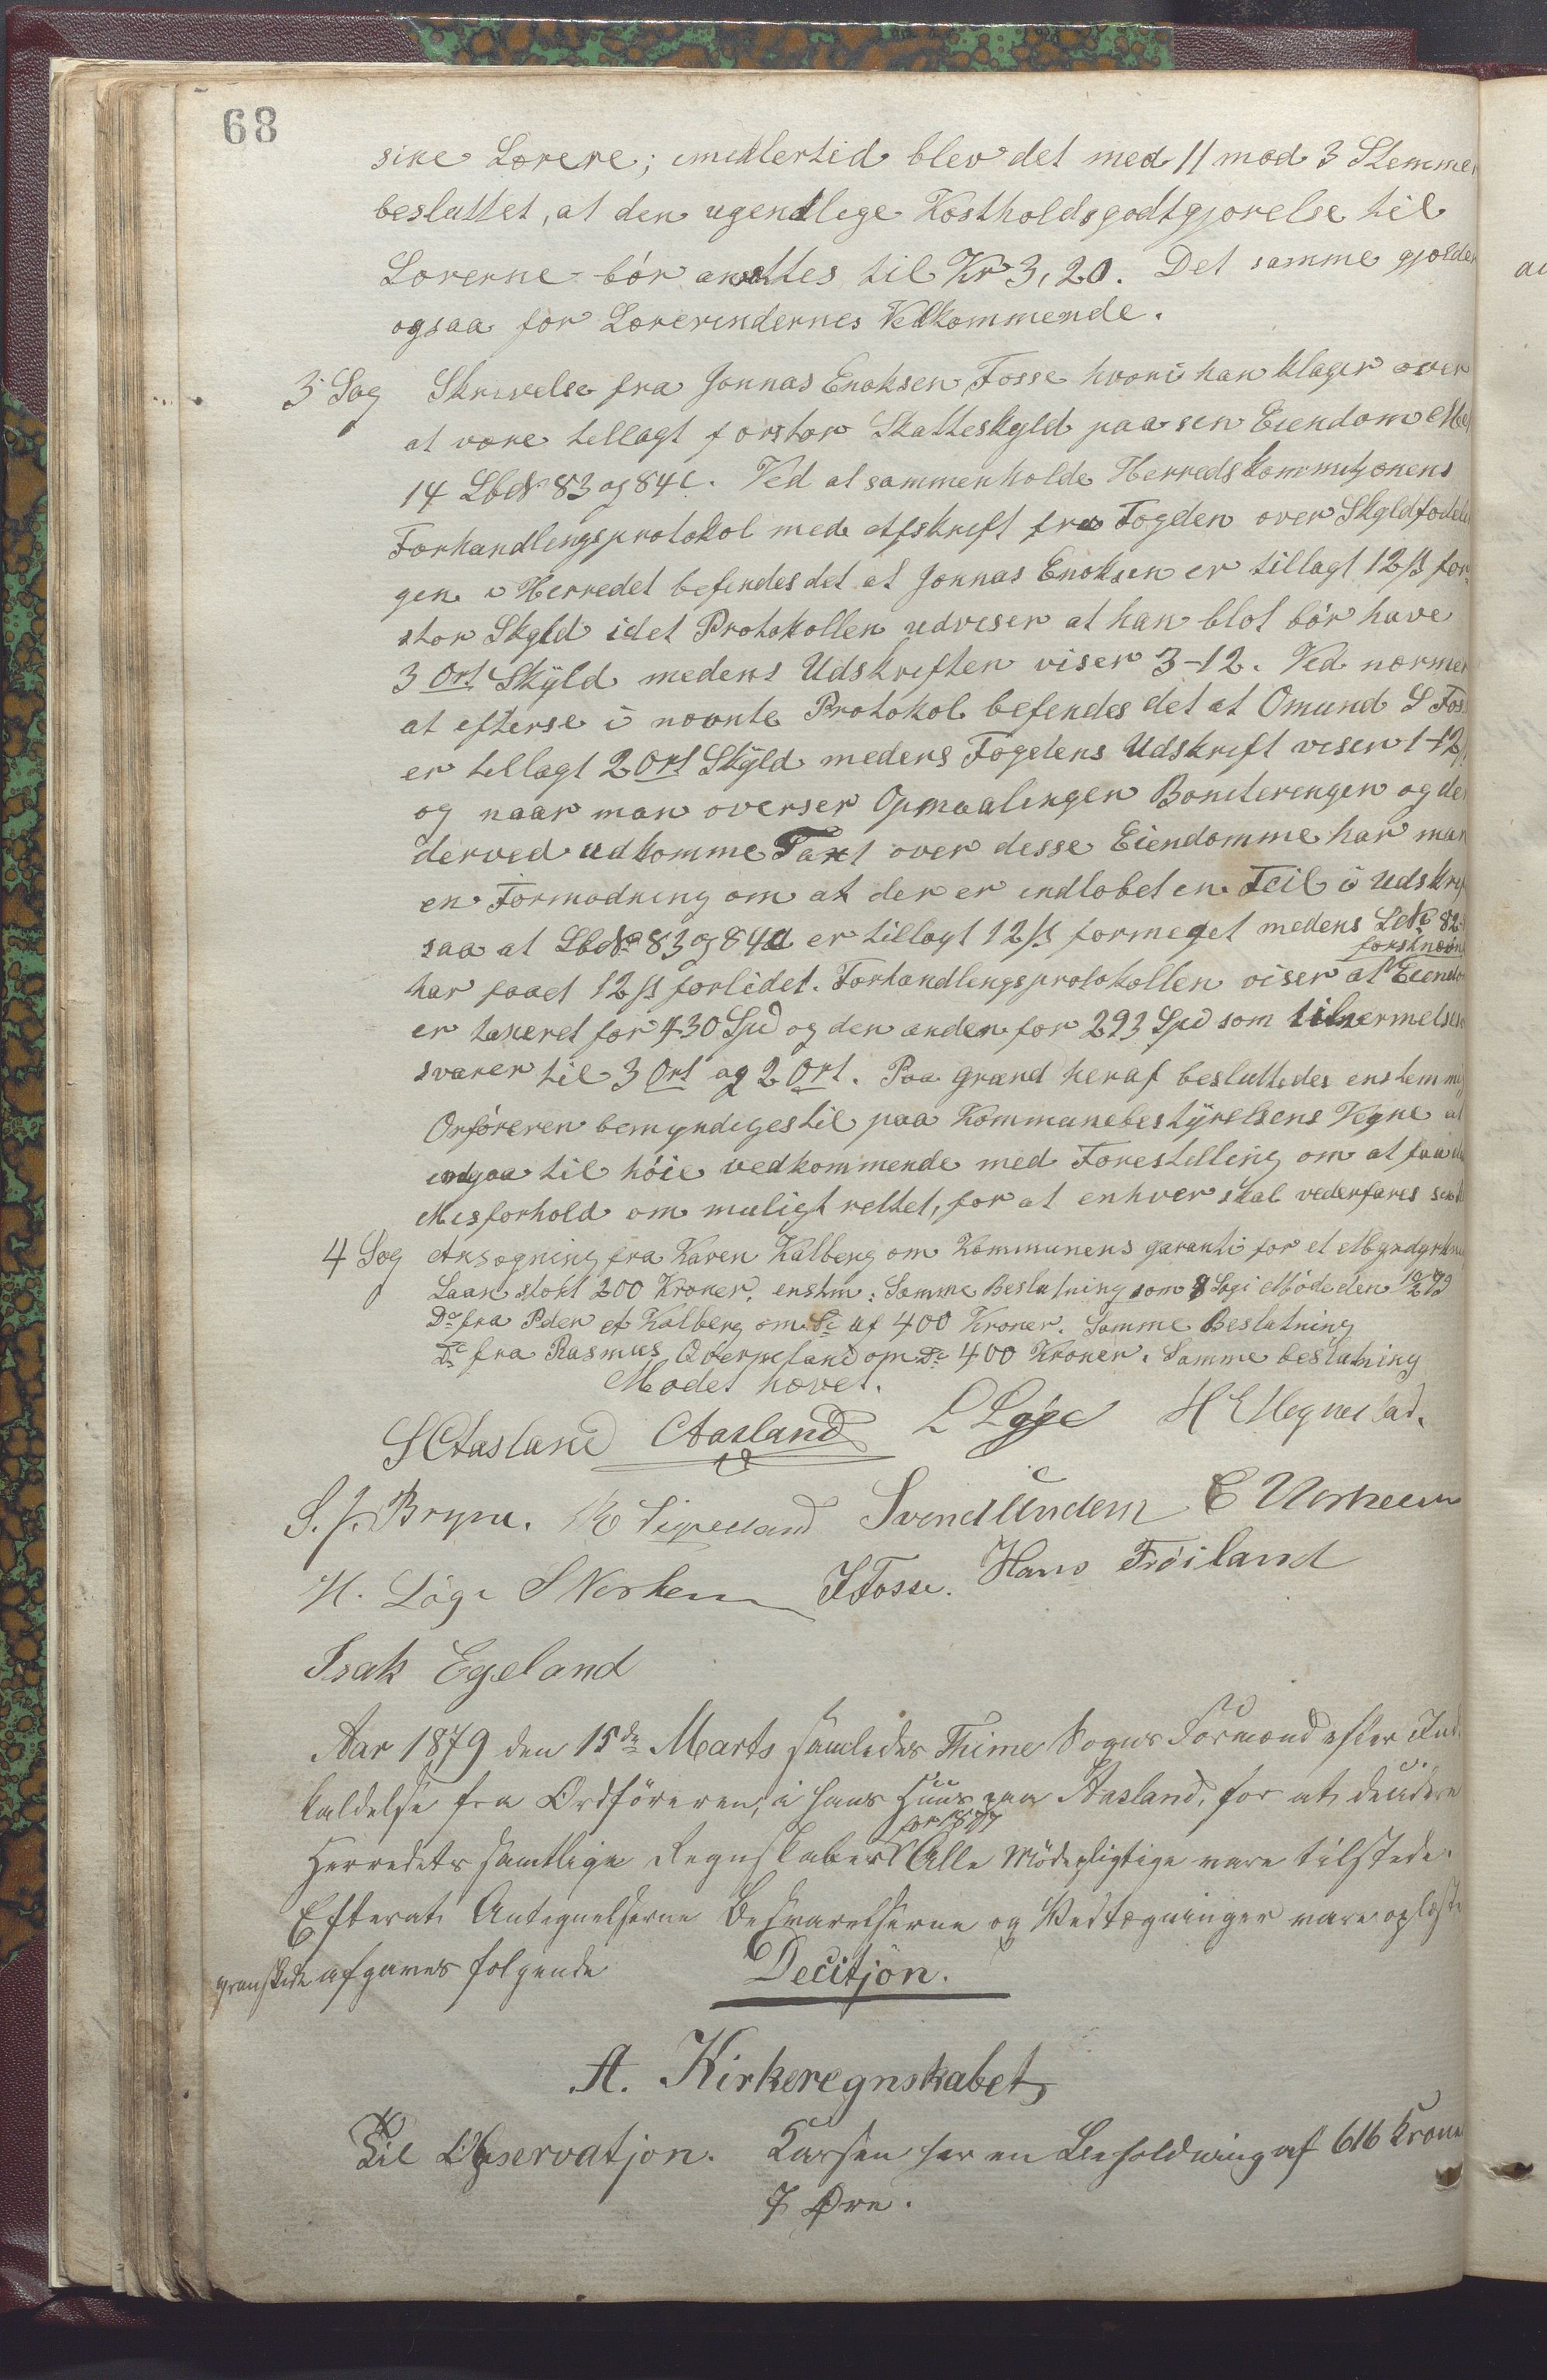 68
sine Lærere; imidlertid blev det med 11 mod 3 Stemmer
besluttet, at den ugentlige Kostholdsgodtgjørelse til
Lærerne bör ansættes til Kr 3,20. Det samme gjælder
ogsaa for Lærerindernes Vedkommende.
3 Sag Skrivelse fra Jonnas Enoksen Fosse hvori han klager over
at være tillagt forstor Skatteskyld paa sin Eiendom
14 Lbd№ 83 og 84c. Ved at sammenholde Herredskommitjonens
Forhandlingsprotokol med Afskrift fra Fogden over Skyldfodelin
gen i Herredet befindes det at Jonnas Enoksen er tillagt 12 ß for
stor Skyld idet Protokollen udviser at han blot bör have
3 Ort Skyld medens Udskriften viser 3-12. Ved nærmer
at efterse i nævnte Protokol befindes det at Omund S Fos
er tillagt 2 Ort Skyld medens Fogdens Udskrift viser 1-12
og naar man overser Opmaalingen Boniteringen og den
derved udkomme Taxt over disse Eiendomme har man
en Formodning om at der er indlöbet en Feil i Udskrif
saa at Lbd№ 83 og 84a er tillagt 12 ß formeget medens Ld№ 82
har faaet 12 ß forlidet. Forhandlingsprotokollen viser at förstnævn Eiendo
er taxeret for 430 Spd og den anden for 293 Spd som tilnermelses
svarer til 3 Ort og 2 Ort. Paa grund heraf besluttedes enstemmig
Orföreren bemyndiges til paa Kommunebestyrelsens Vegne at
indgaa til höie vedkommende med Forestilling om at faa
Misforhold om muligt rettet, for at enhver skal vederfares
4 Sag Ansøgning fra Karen Kalberg om Kommunens garanti for et Myrdyrkn
Laan stort 200 Kroner. enstm: Samme Beslutning som 8 Sag i Møde den 10/2 79
Do fra Peder A Kalberg om Do af 400 Kroner. Samme Beslutning
Do fra Rasmus Qverneland om Do 400 Kroner. Samme beslutning
Mødet hævet.
S Aasland Aasland L Lyge H E Hognestad.
S. J. Bryne. Svend Undem E Norheim
H. Löge S Norheim J Fosse. Hans Fröiland
Isak Egeland
Aar 1879 den 15de Marts samledes Thime Sogns Formænd efter Ind
kaldelse fra Ordföreren, i hans Huus paa Aasland, for at decidere
Herredets samtlige Regnskaber for 1877 Alle Mödepligtige vare tilstede.
Efterat Antegnelserne Besvarelserne og Vedtegninger vare oplæste
granskede afgaves følgende Decitjön.
A. Kirkeregnskabet
Til Observatjon. Kassen har en Beholdning af 616 Krone
7 Øre.